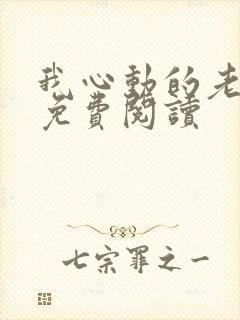 我心動的老
免費閱讀
七宗罪之一